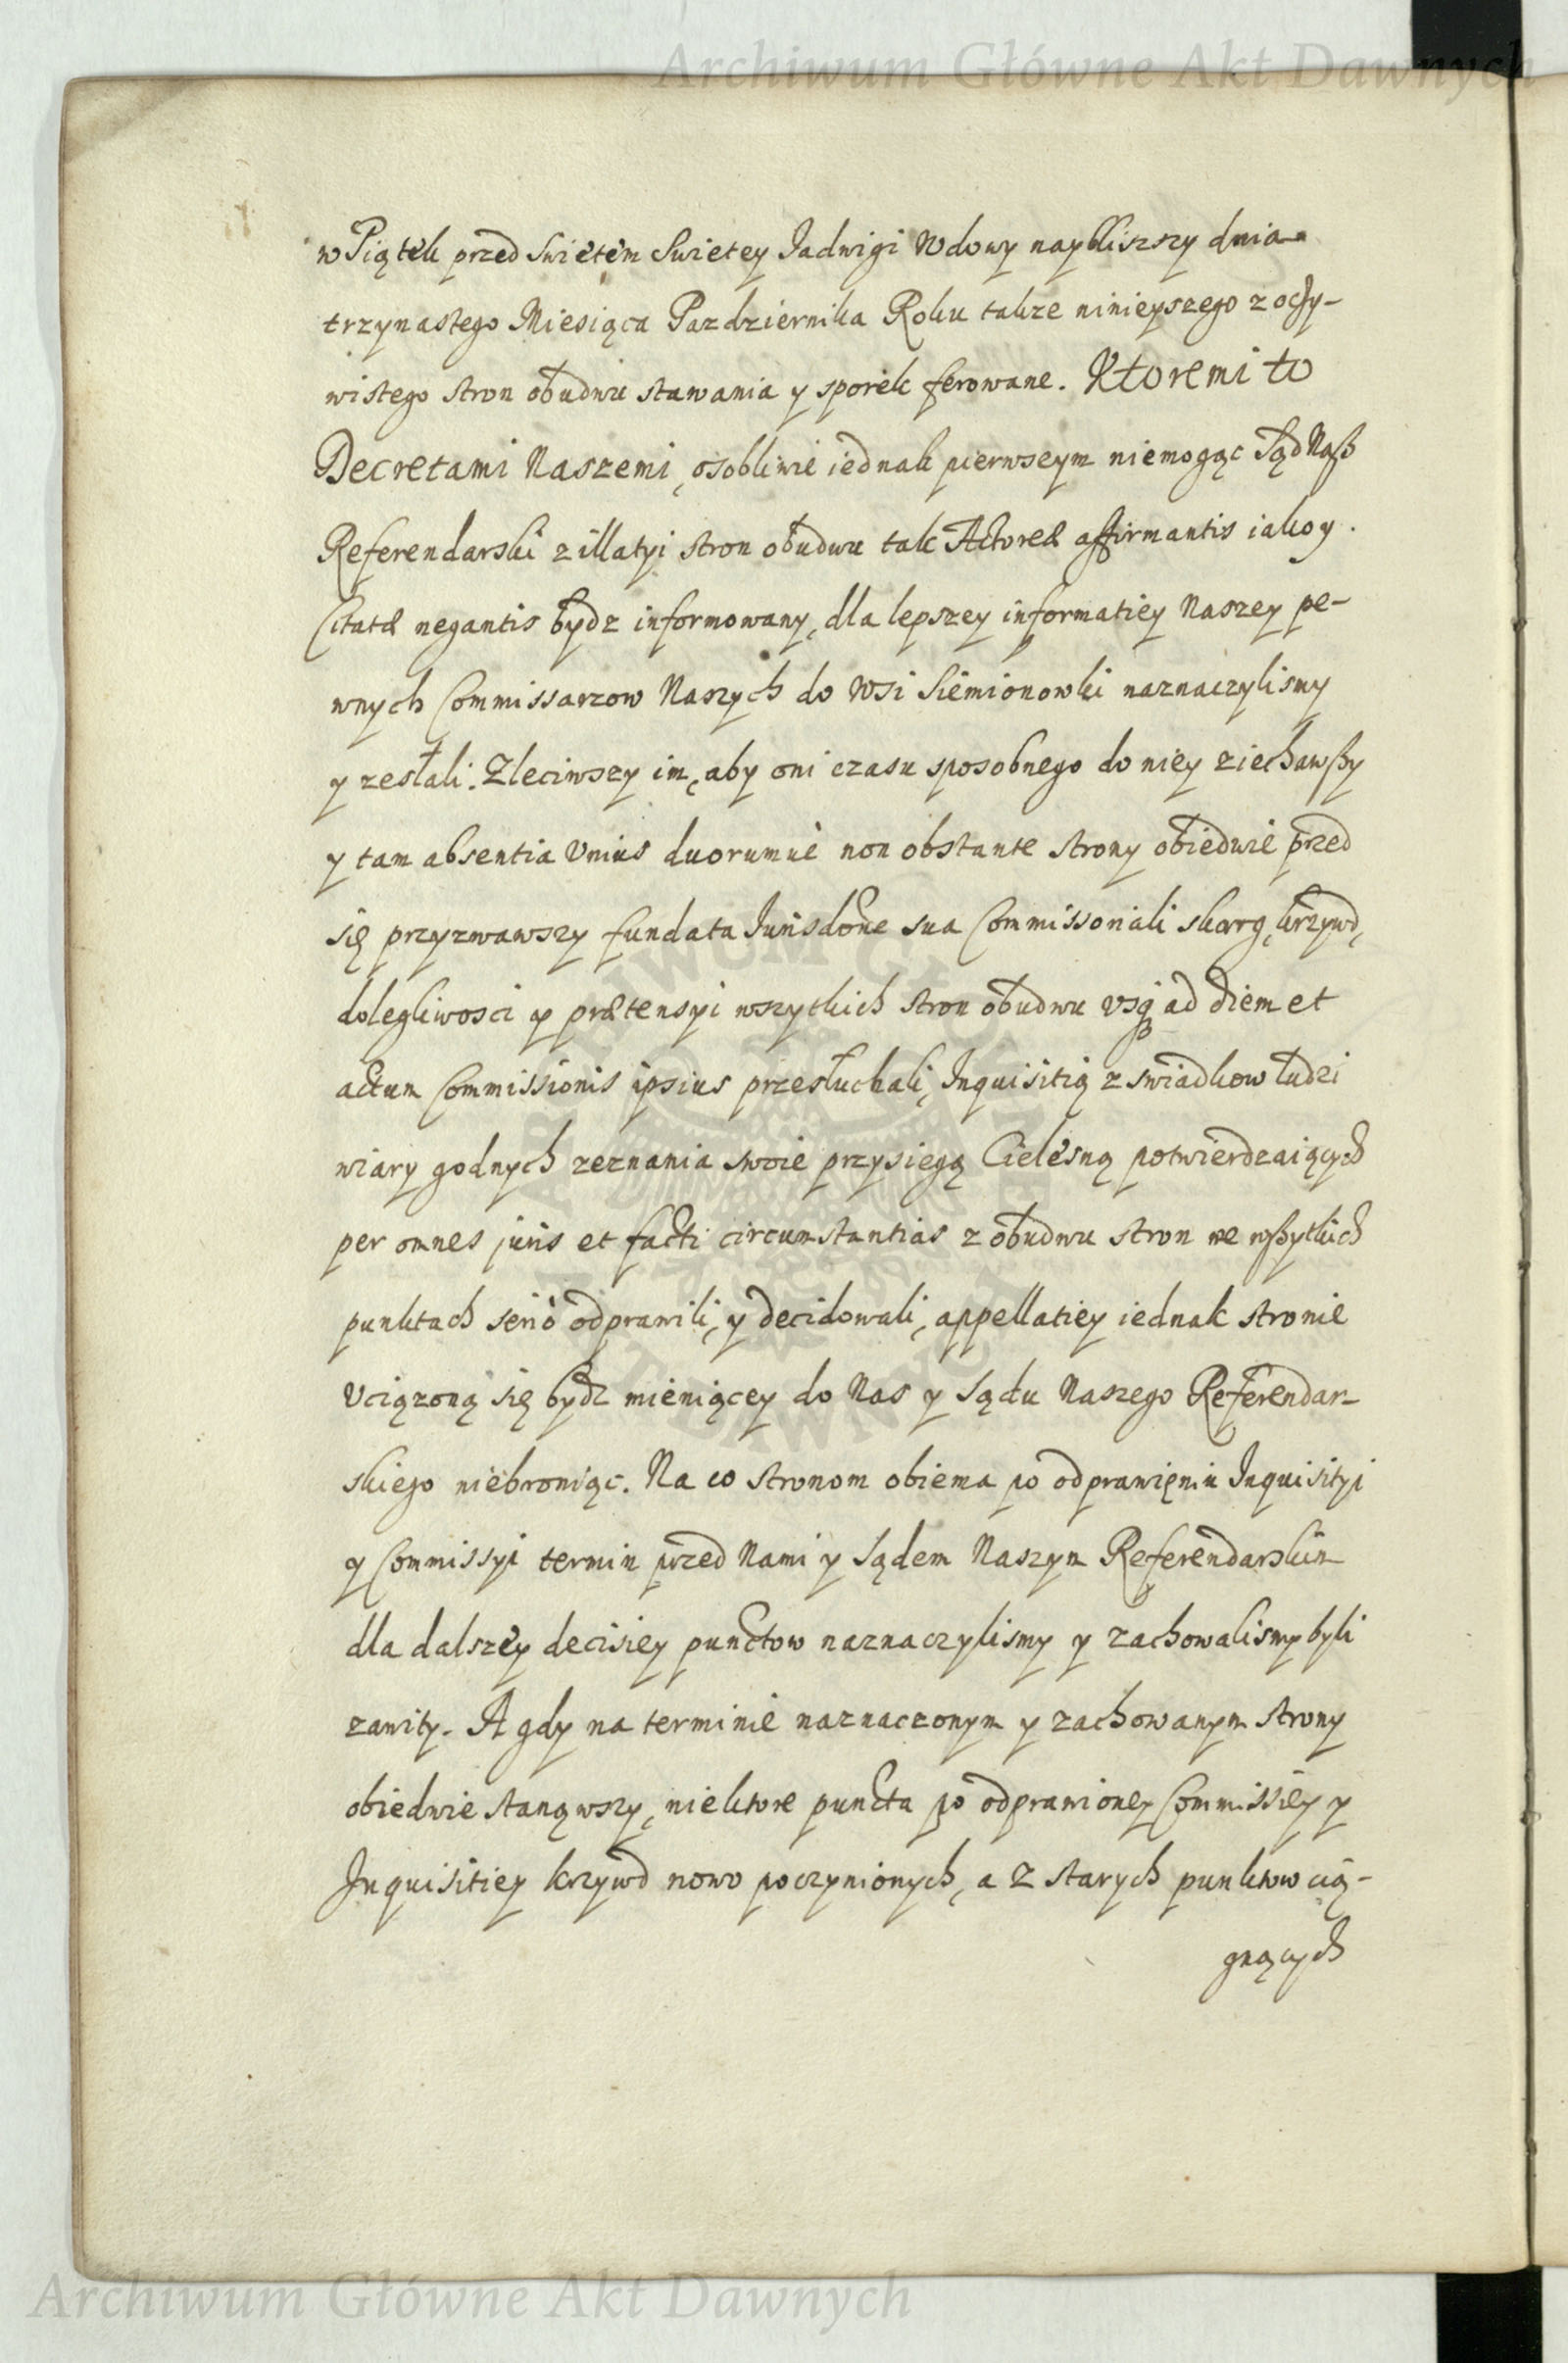 Archiwum Główne Akt Dawnych
w Piątek przed Swietem Swietey Jadwigi Wdowy naybliszszy dnia
trzynastego Miesiąca Pazdziernika Roku takze ninieyszego z oczy-
wistego stron obudwu stawania y sporek ferowane. Ktoremi to
Decretami Naszemi, osobliwie iednak pierwseym niemogąc Sąd Naß
Referendarski z illatyi stron obudwu tak Actoreæ affirmantis iako y
Citatæ negantis bydz informowany, dla lepszey informatiey Naszey pe-
wnych Commissarzow Naszych do Wsi Siemionowki naznaczylismy
y zesłali. Zleciwszy im, aby oni czasu sposobnego do niey ziechawßy
y tam absentia Unius duorumue non obstante strony obiedwie przed
się przyzwawszy fundata Jurisdone sua Commissoriali skarg, krzywd,
dolegliwosci y prætensyi wszytkich stron obudwu usq ad diem et
actum Commissionis ipsius przesłuchali, Inquisitią z swiadkow ludzi
wiary godnych zeznania swoie przysięgą Cielesną potwierdzaiących
per omnes juris et facti circumstantias z obudwu stron we wßytkich
punktach seriò odprawili, y decidowali, appellatiey iednak stronie
Uciązoną się bydz mieniącey do Nas y Sądu Naszego Referendar-
skiego niebroniąc. Na co stronom obiema po odprawieniu Inquisityi
y Commissyi termin przed Nami y Sądem Naszym Referendarskim
dla dalszey decisiey punctow naznaczylismy y zachowalismy byli
zawity. A gdy na terminie naznaczonym y zachowanym strony
obiedwie stanąwszy, niektore puncta po odprawioney Commissiey y
Inquisitiey krzywd nowo poczynionych, a z starych punktow cią-
gnących
Archiwum Główne Akt Dawnych